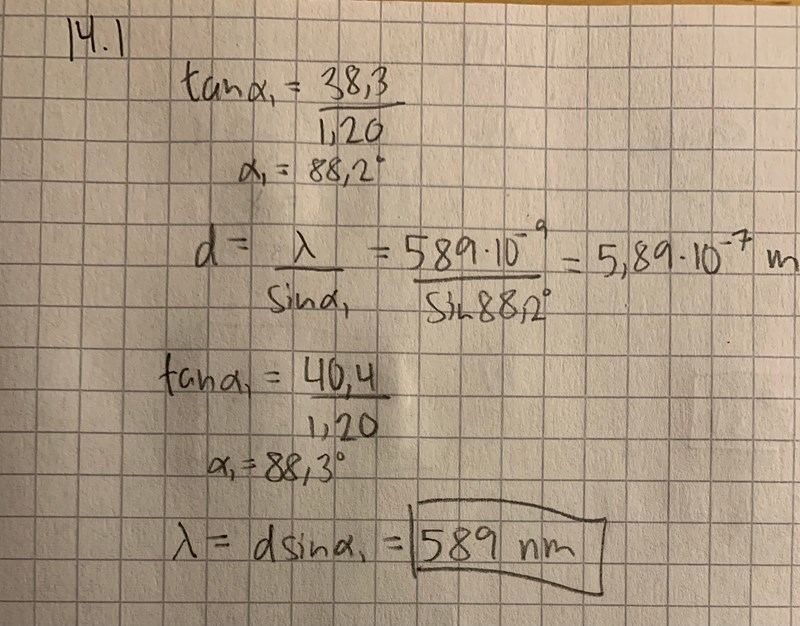 14.1
tanα₁ = 38,3 / 1,20
α₁ = 88,2°
d = λ / sinα₁ = 589·10⁻⁹ / sin88,2° = 5,89·10⁻⁷ m
tanα₁ = 40,4 / 1,20
α₁ = 88,3°
λ = d sinα₁ = 589 nm